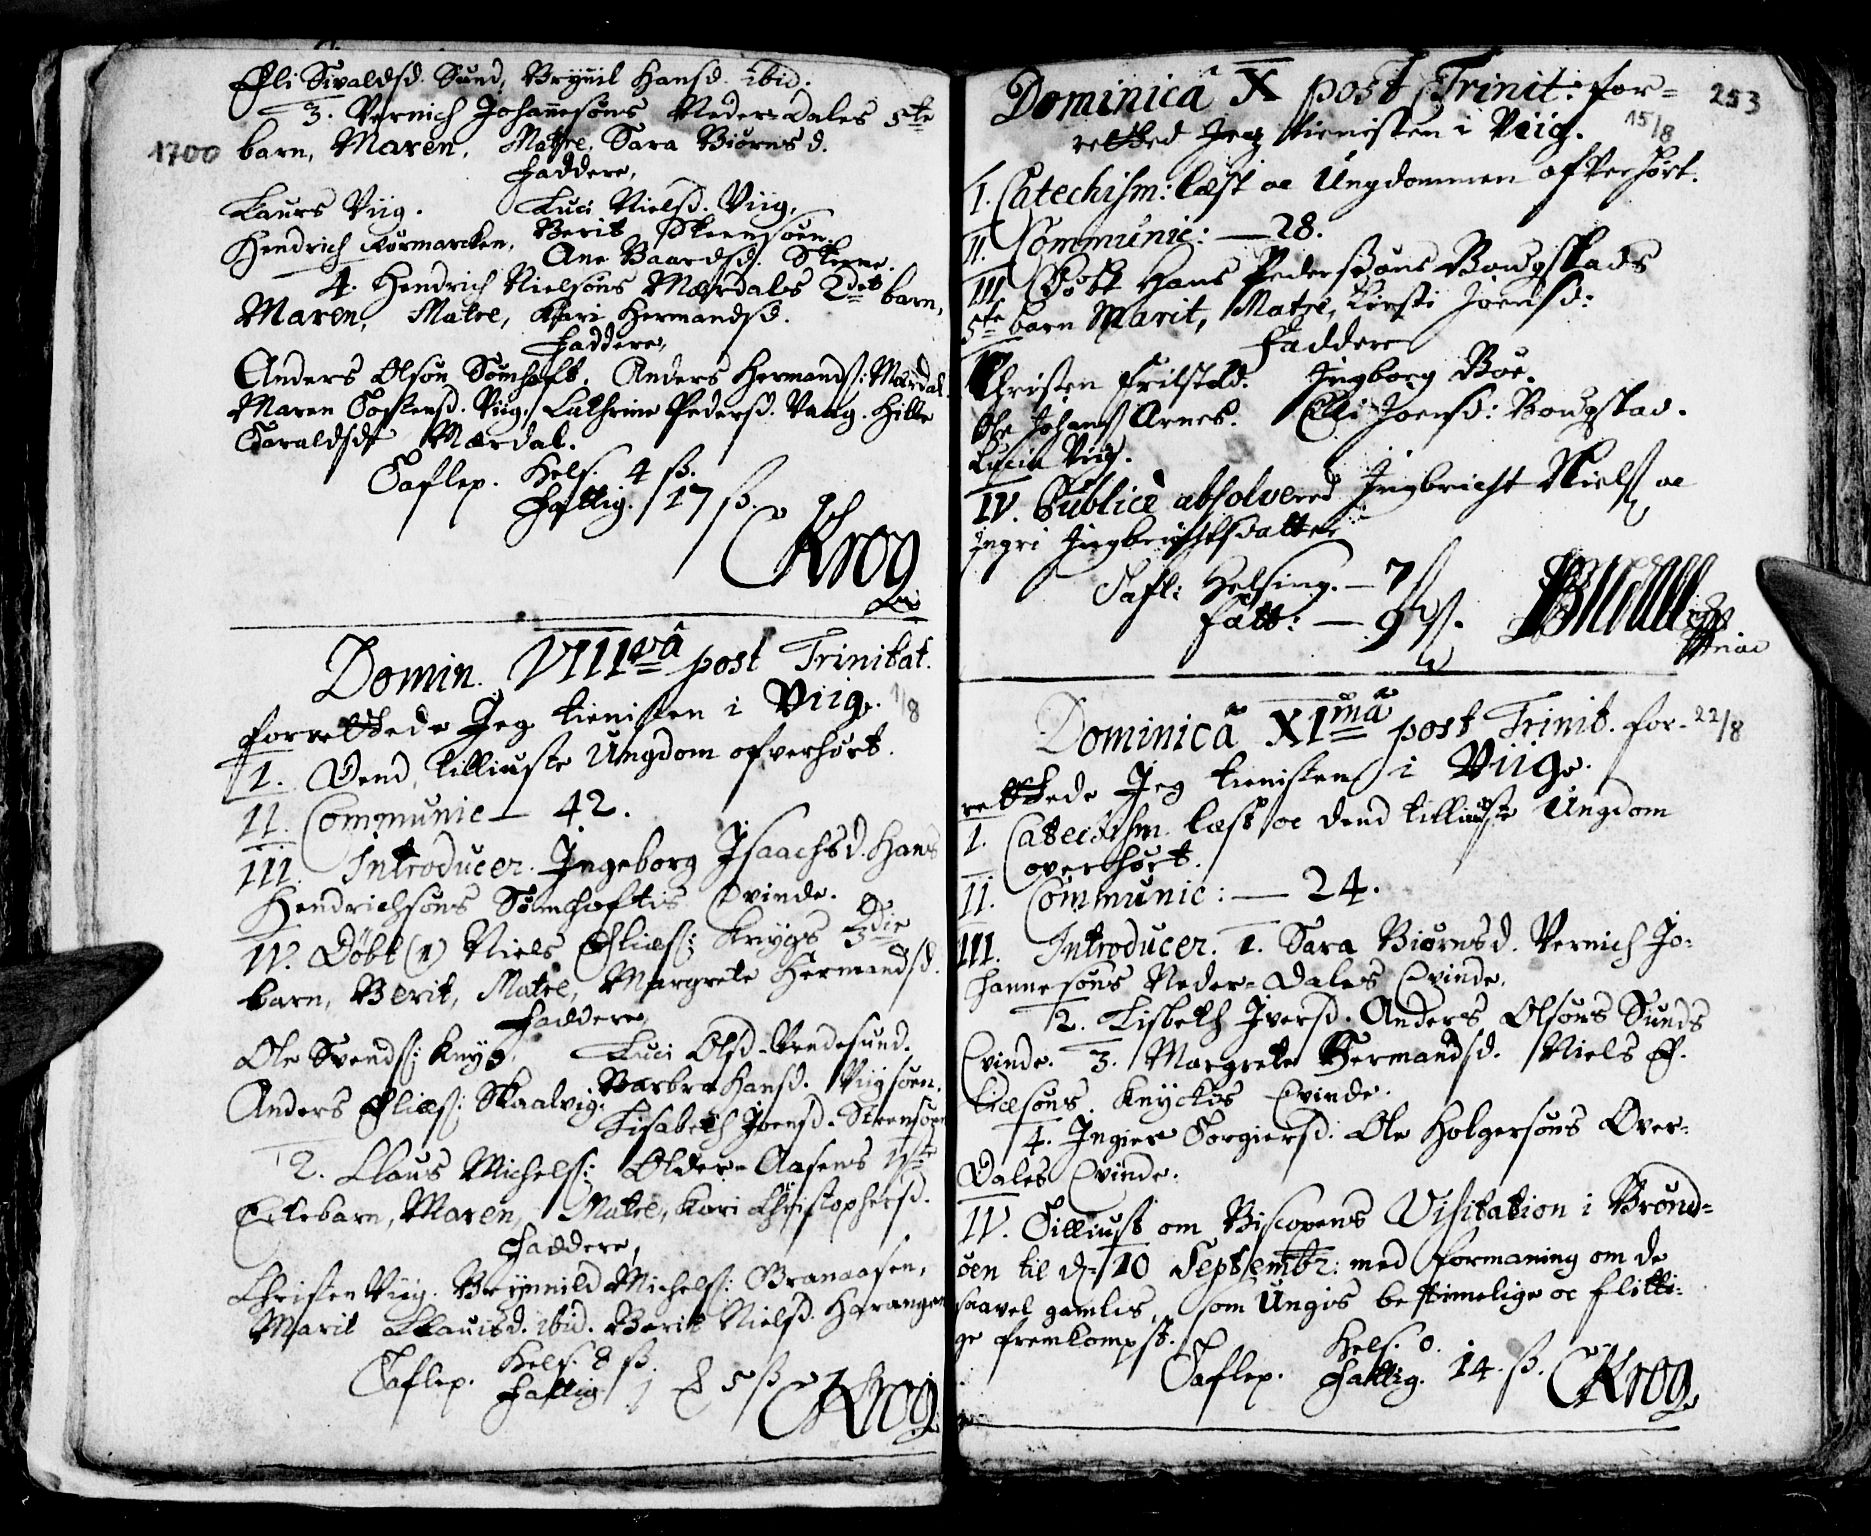 Eli Sivaldsd. Sund, Brynil Hansd. ibid.
3. Vernich Johannesøns Neder-Dales 5te
1700 barn, Maren, Matre, Sara Biørnsd.
Faddere,
Laurs Viig. Luci Nielsd. Viig,
Hendrich Rørmarcken. Berit Steensøen.
Ane Baardsd. Steene.
4. Hendrich Nielsøns Mærdales 2det barn,
Maren, Matre, Kari Hermandsd.
Faddere,
Anders Olsøn Sømhoft, Anders Hermands: Mærdal
Maren Tostensd. Viig, Cathrine Pedersd. Vaag. Hille
Haraldsdr Mærdal.
Taflep. Hels. 4 ß.
Fattig. 17 ß.
CKrog
Domin. VIIIvâ post Trinitat.
forrettede Jeg tienisten i Viig. 1/8
I. Dend tilliuste Ungdom ofverhørt.
II. Communic — 42.
III. Introducer. Ingeborg Isaachsd. Hans
Hendrichsøns Sømhoftis Qvinde.
IV. Døbt (1) Niels Eliæs: Knygs 3die
barn, Berit, Matre, Margrete Hermandsd.
Faddere,
Ole Svends: Knyg. Luci Olsd. Rendesund.
Anders Eliæs: Skaalvig. Barbra Hansd. Viigsøen.
Lisabeth Joensd. Steensøen
2. Claus Michels: Older-Aasens 1ste
Ectebarn, Maren, Matre, Kari Christophersd.
Faddere,
Christen Viig. Brynnild Michels: Granaasen,
Marit Clausd. ibid. Berit Nielsd. Horangen
Taflep. Hels. 8 ß.
Fattig 5 ß
CKrog
Dominicâ X post Trinit: for- 253
retted Jeg tienisten i Viig. 15/8
I. Catechism: læst oc Ungdommen ofverhørt.
II. Communic: — 28.
III Døbt Hans Pedersøns Bougstads
5te barn Marit, Matre, Kirsti Joensd:
Faddere
Christen Trilstad. Ingborg Boe.
Ole Johans Arnes. Elli Joensd: Bougstad.
Lucia Viig.
IV. Publicè absolvered Ingbricht Niels oc
Ingri Ingbrichtsdatter
Tafl: Helsing. — 7 ß
Fatt: — 9 ß.
Dominicâ XImâ post Trinit. for- 22/8
rettede Jeg tienisten i Viig.
I. Catechism. læst oc dend tilliuste Ungdom
overhørt.
II. Communic: — 24.
III. Introducer. 1. Sara Biørnsd. Vernich Jo-
hannesøns Neder-Dales Qvinde.
2. Lisbeth Iversd. Anders Olsøns Sunds
Qvinde. 3. Margrete Hermandsd. Niels E-
liæsøns Knyckes Qvinde.
4. Ingier Torgiersd. Ole Holgersøns Over-
Dales Qvinde.
IV. Tilliust om Biscopens Visitation i Brønd-
øen til d. 10 Septembr: med formaning om de
saavel gamles, som Ungis bestimelige oc flitti-
ge fremkomst.
Taflep. Hels. 0.
Fattig. 14. ß.
CKrog